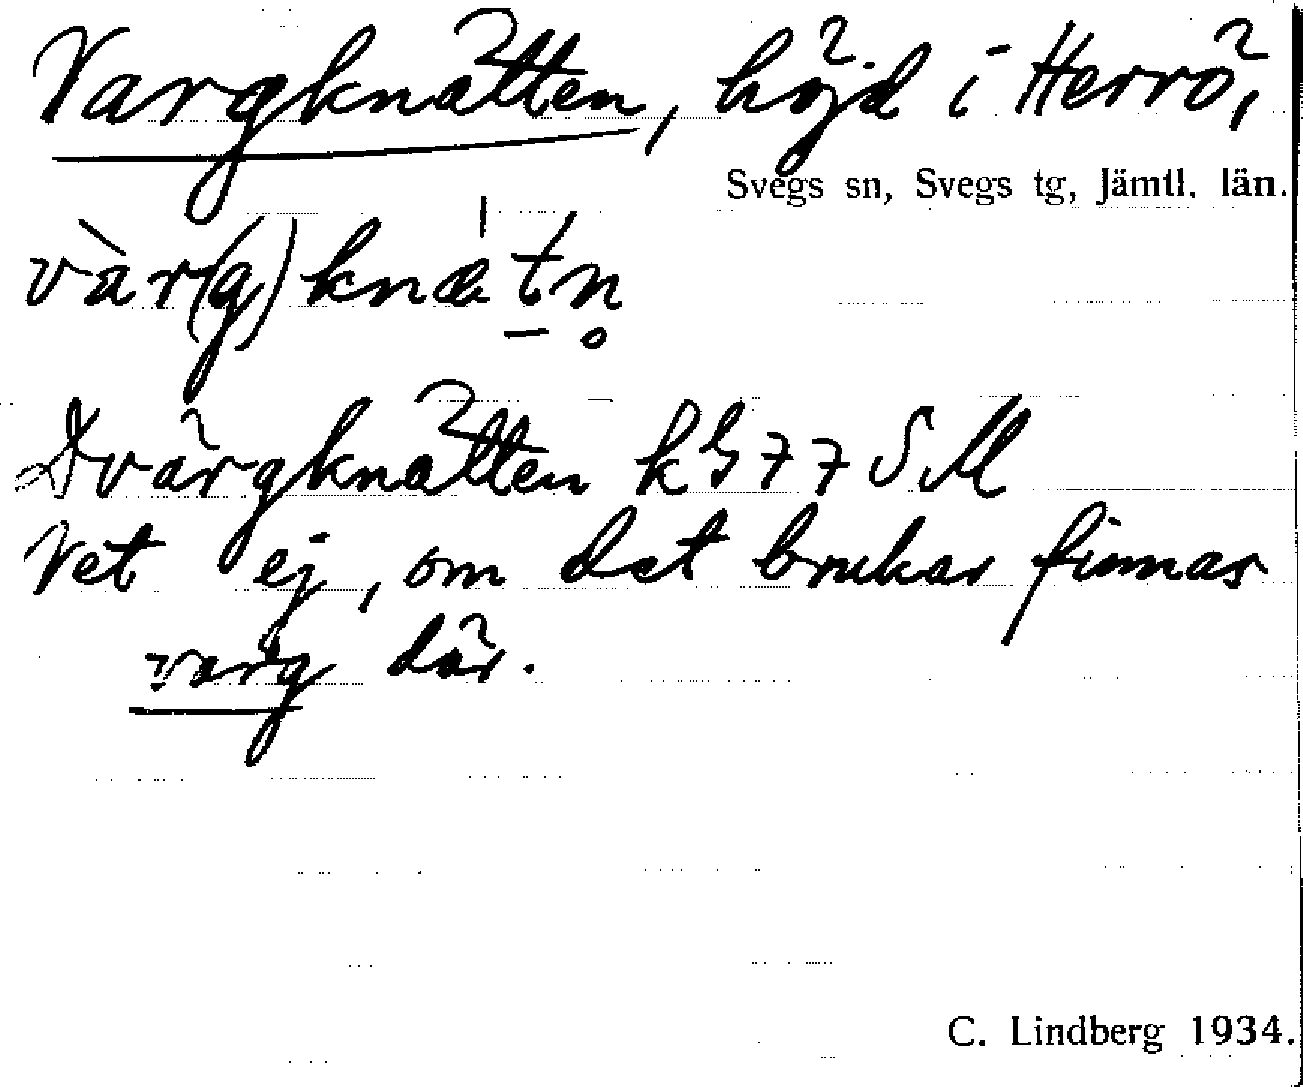 Vargknätten, höjd i Herrö,
Svegs sn, Svegs tg, Jämtl. län.
vàr(g)knæ̍t̲n̥
Dvärgknätten kG77SM
Vet ej, om det brukar finnas
varg där.
C. Lindberg 1934.